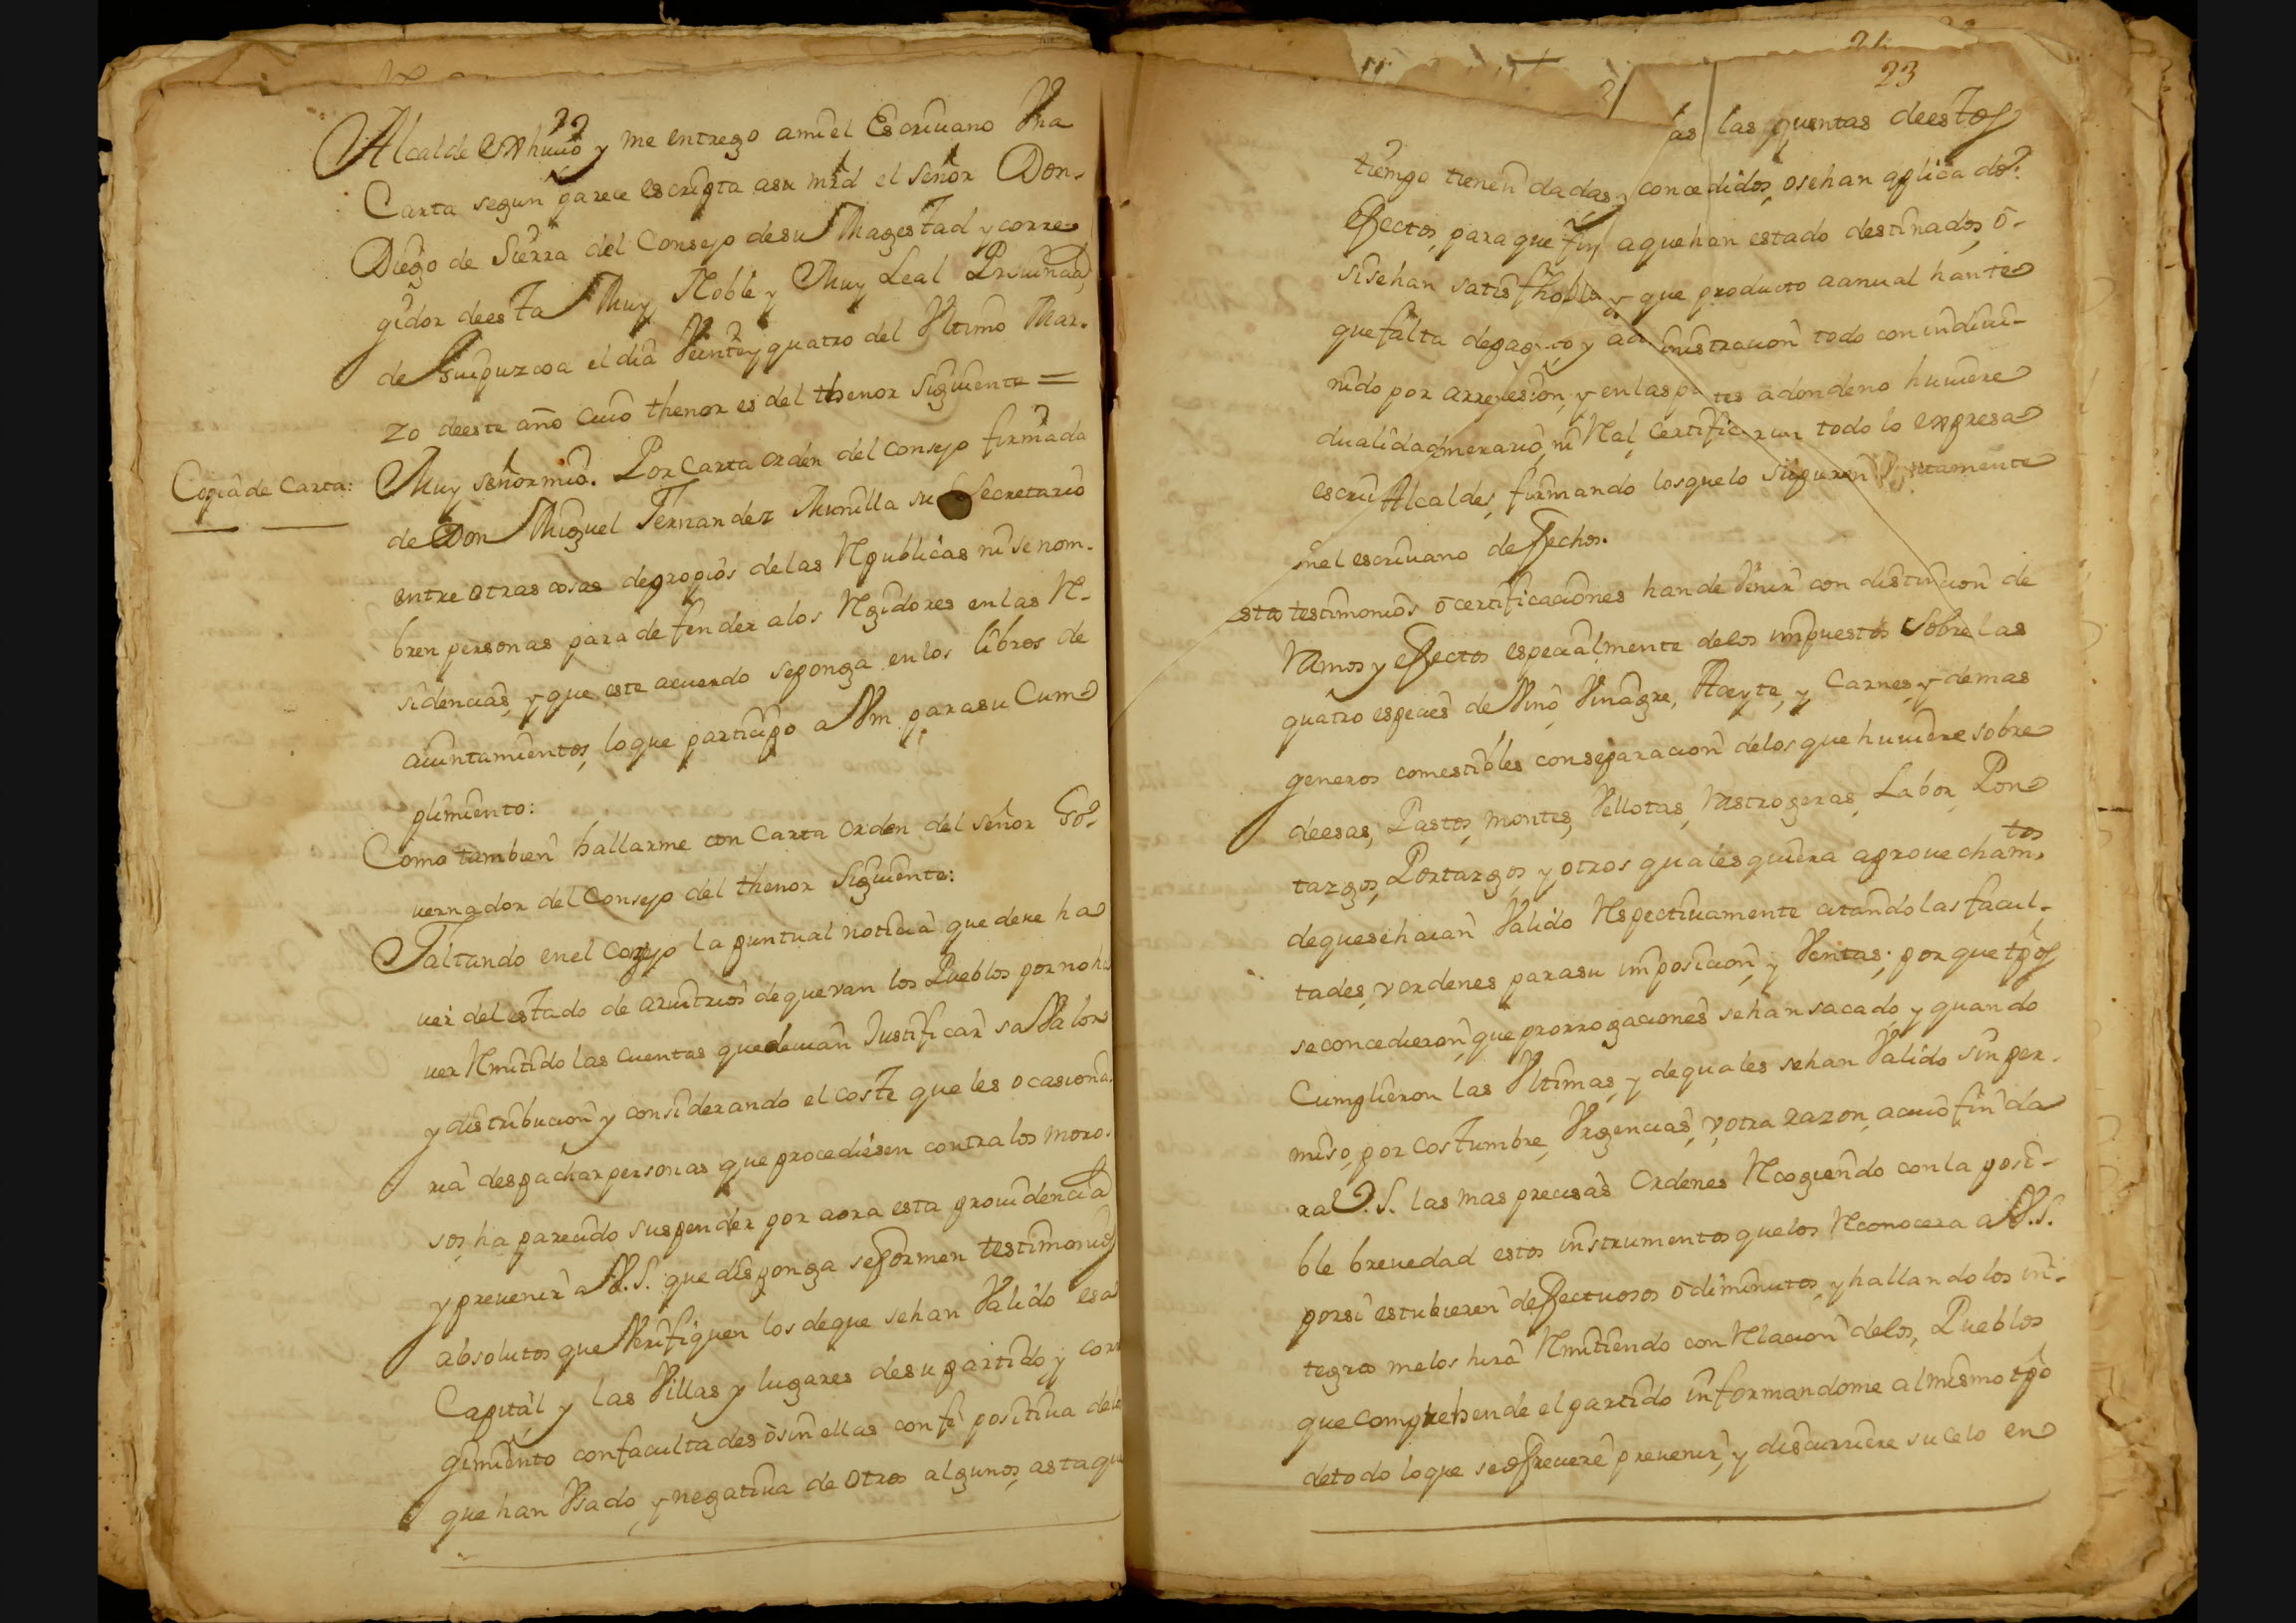 22
Alcalde Exhiuio y me entrego ami el Escriuano Vna
Carta segun parece escripta asu mrd el señor Don
Diego de Sierra del Consejo desu Magestad y corre
gidor deesta Muy Noble y Muy Leal Prouincia
de Guipuzcoa el dia Veinte y quatro del Vltimo Mar-
zo deeste año cuio thenor es del thenor Siguiente =
Copia de Carta:
Muy señor mio. Por Carta orden del Consejo firmada
de Don Miguel Fernandez Munilla su Secretario
entre otras cosas de propios de las Republicas ni se nom-
bren personas para defender alos Regidores en las Re-
sidencias, y que este acuerdo seponga en los libros de
aiuntamientos, loque participo a Vm. para su Cum
plimiento:
Como tambien hallarme con Carta orden del señor Go-
uernador del Consejo del thenor Siguiente:
Faltando en el Consejo la puntual noticia que deue ha
uer del estado de aruitrios de que vsan los Pueblos por no ha
uer Remitido las Cuentas que deuian Justificar sa Valor
y distribucion y considerando el coste que les ocasiona
ria despachar personas que procediesen contra los moro-
sos, ha parecido suspender por aora esta prouidencia
y preuenir a V.S. que disponga se formen testimonios
absolutos que Verifiquen los de que se han Valido esa
Capital y las Villas y lugares desu partido y corre
gimiento con facultades ò sin ellas con fè positiua delos
que han Vsado, y negatiua de otros algunos, asta que
23
as las quentas deestos
tiempo tienen dadas, concedidos, o sehan aplicado
efectos, para que fin, a que han estado destinados, ò
si sehan satisfho y que producto aanual han te
que falta de pag to y ad ministracion todo con indiui-
nido por arre esion, y en las pa tes adonde no huuiere
dualidad merario, ni Real, Certific ran todo lo expresa
escriu Alcaldes, firmando los que lo supieren Juntamente
n el escriuano de fechos.
sto testimonios ò certificaciones han de Venir con distincion de
Ramos y efectos especialmente de los impuestos sobre las
quatro especies de Vino, Vinagre, Aceyte, y Carnes, y demas
generos comestibles con separacion de los que huuiere sobre
deesas, Pastos, montes, Vellotas, Rastrogeras, Labor, Pon
tazgos, Portazgos, y otros quales quiera aprouechamtos
de que se haian Valido Respectiuamente citando las facul-
tades, v ordenes para su imposicion, y Ventas; por que tpos
se concedieron, que prorrogaciones sehan sacado, y quando
Cumplieron las Vltimas, y de quales sehan Valido sin per-
miso, por costumbre, Vrgencias, v otra razon, acuio fin da
ra V.S. las mas precisas Ordenes Recogiendo con la posi-
ble breuedad estos instrumentos que los Reconocera a V.S.
por si estubieren defectuosos ò diminutos, y hallandolos in-
tegros me los hirà Remitiendo con Relacion de los, Pueblos
que comprehende el partido informandome al mismo tpo
de todo lo que se ofreciere preuenir, y discurriere su celo en